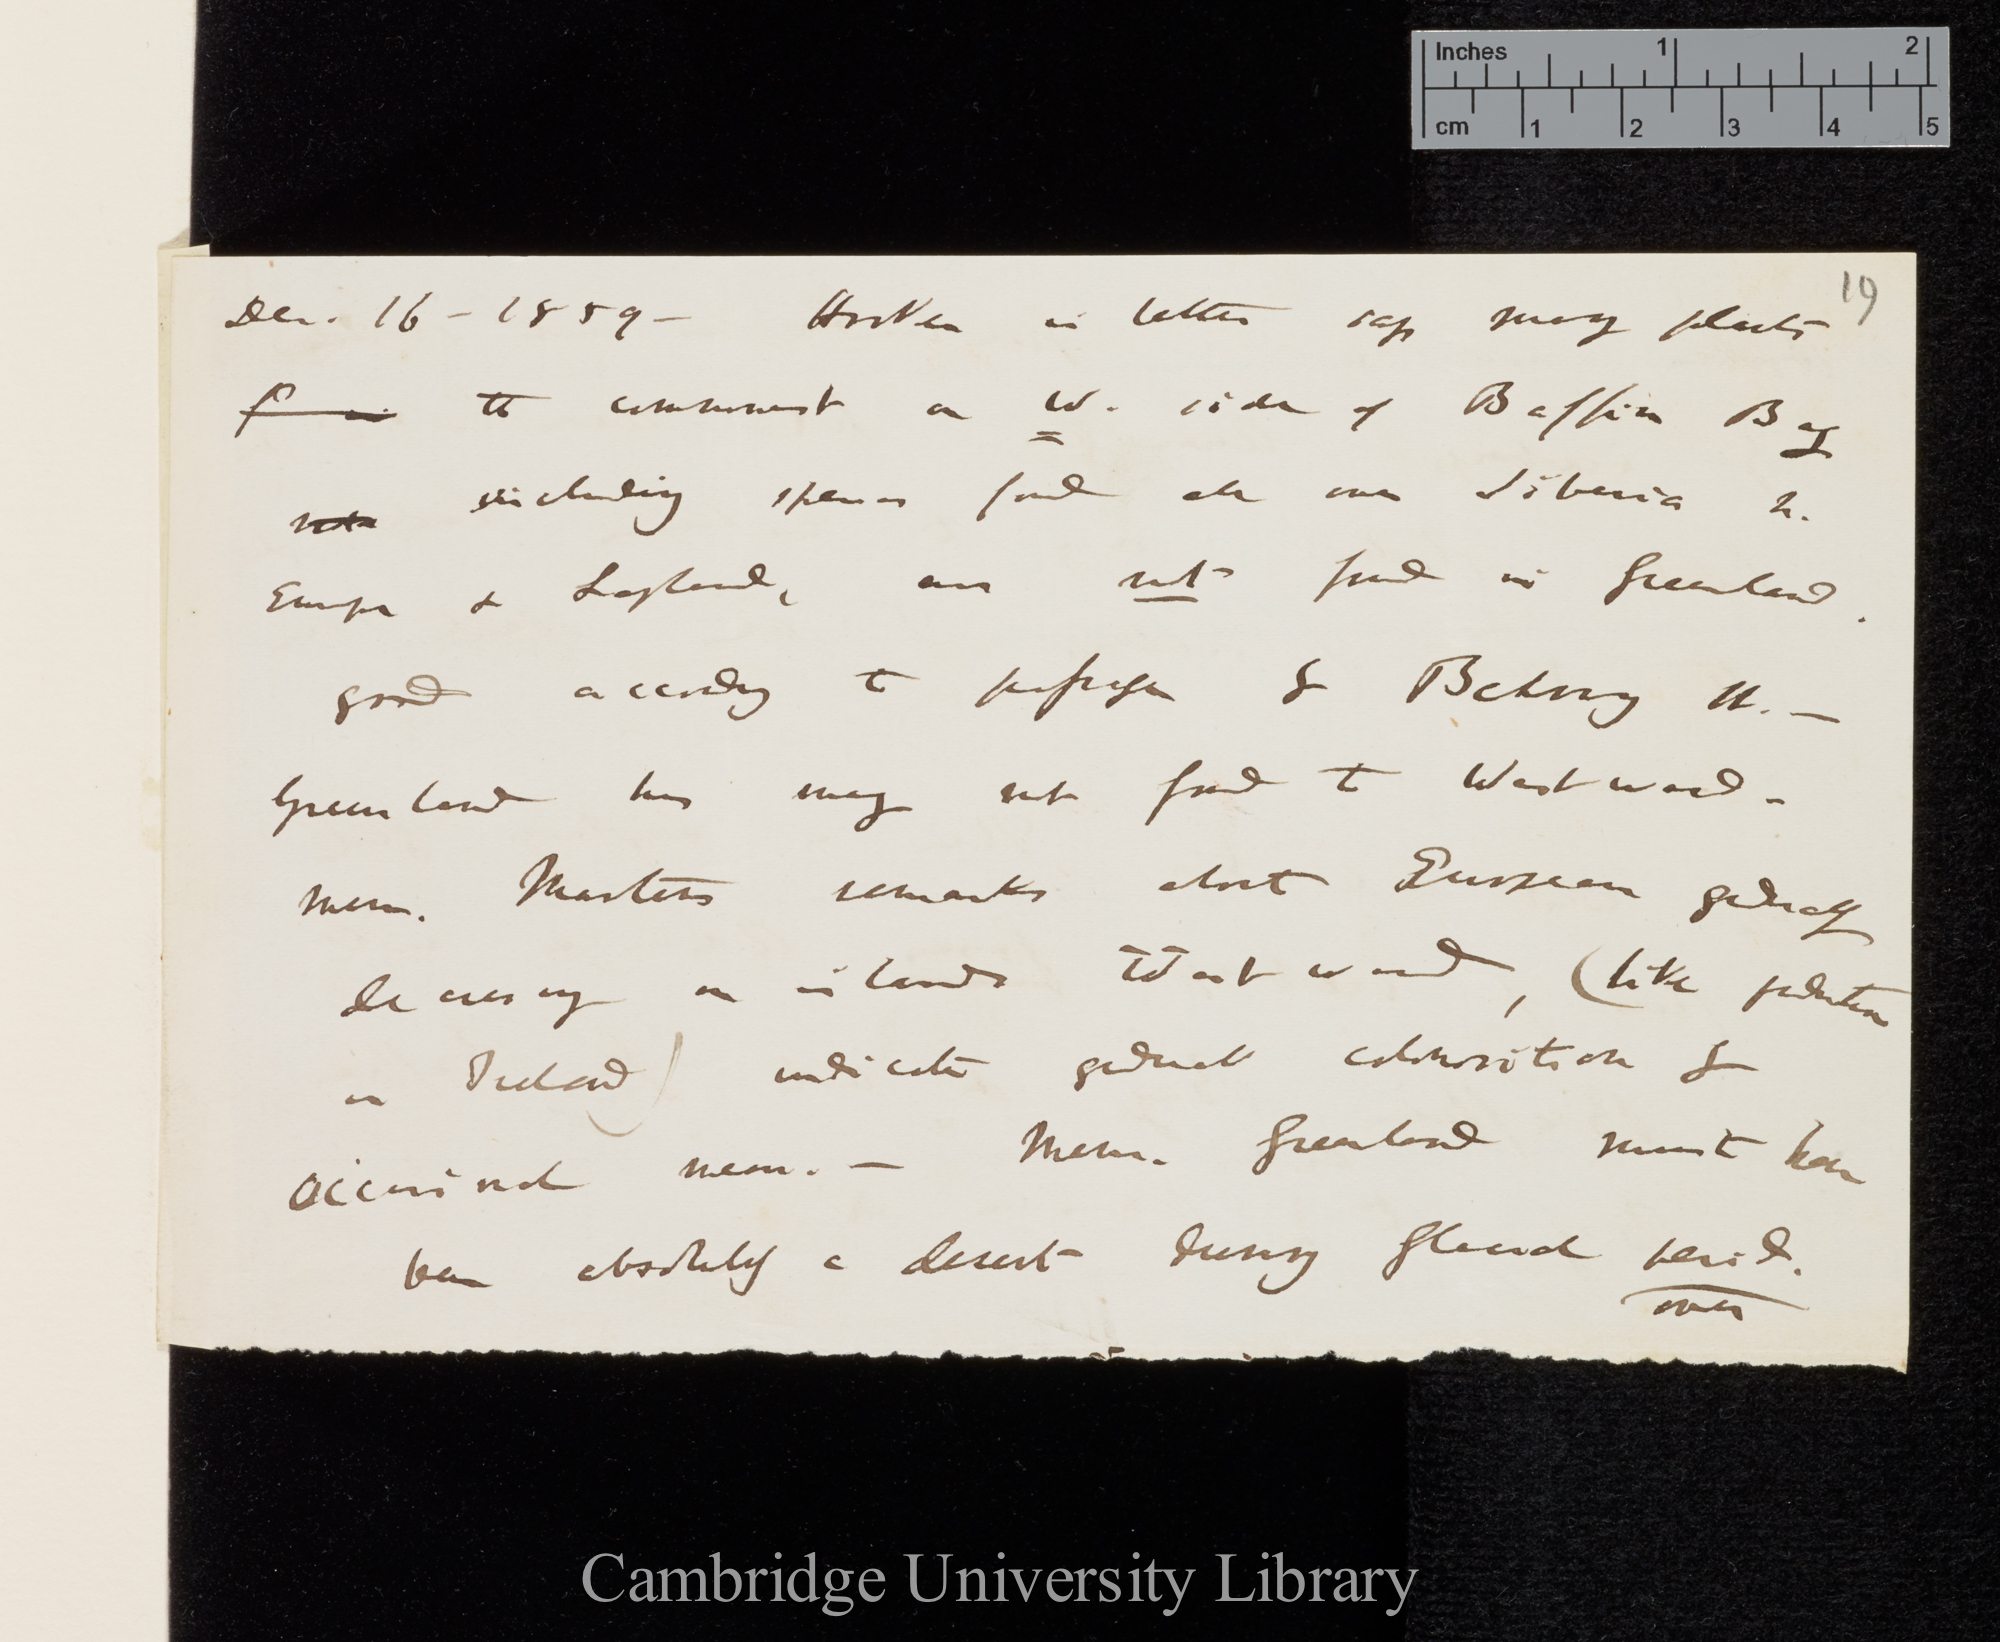 Inches 1 2
cm 1 2 3 4 5
19
Dec. 16 – 1859 – Hooker in letter says many plants
the commonest on W. side of Baffin Bay
not including species found all over Siberia N.
Europe & Lapland, are not found in Greenland.
good according to passage fr Behring St. –
Greenland has many not found to Westward –
Mem. Martens remarks about European gradually
decreasing on islands Westward, (like gradation
in Ireland) indicates gradual colonisation fr
occasional means. – Mem. Greenland must have
been absolutely a desert during Glacial period.
over
Cambridge University Library